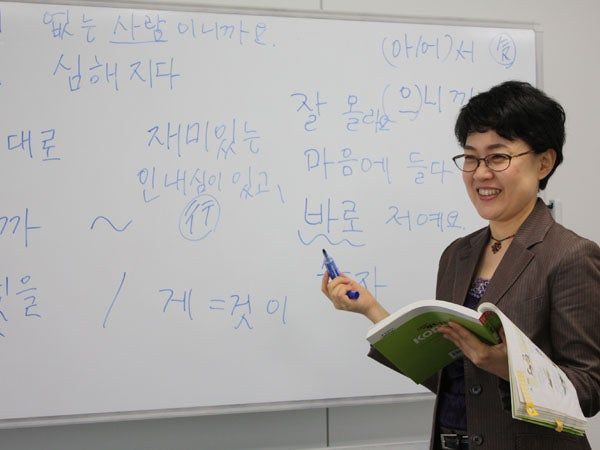 없는 사람이니까요.
심해지다
대로
까 ~
것을 /
재미있는
인내심이 있고,
行
게 = 것이
(아/어)서
잘 몰라요 (으)니까
마음에 들다
바로 저예요.
KOR